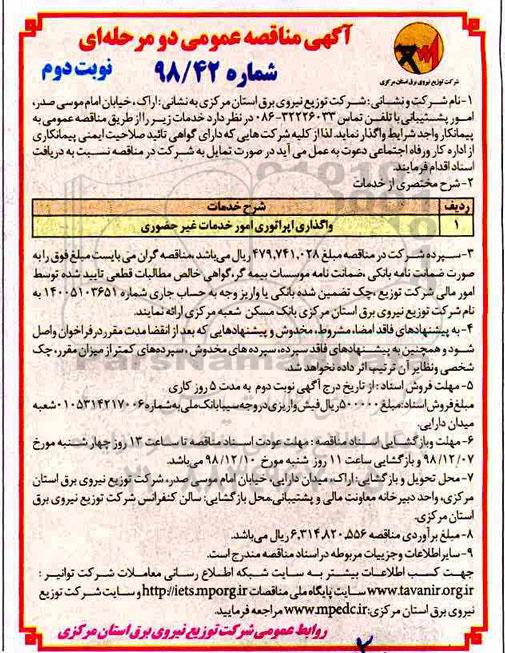 آگهی مناقصه عمومی دو مرحله‌ای
شماره ۹۸/۴۲
نوبت دوم
شرکت توزیع نیروی برق استان مرکزی
۱-نام شرکت و نشانی: شرکت توزیع نیروی برق استان مرکزی به نشانی: اراک، خیابان امام موسی صدر،
امور پشتیبانی با تلفن تماس ۳۲۲۲۶۰۳۳-۰۸۶ در نظر دارد خدمات زیر را از طریق مناقصه عمومی به
پیمانکار واجد شرایط واگذار نماید. لذا از کلیه شرکت هایی که دارای گواهی تائید صلاحیت ایمنی پیمانکاری
از اداره کار و رفاه اجتماعی دعوت به عمل می آید در صورت تمایل به شرکت در مناقصه نسبت به دریافت
اسناد اقدام فرمایند.
۲-شرح مختصری از خدمات
ردیف شرح خدمات
۱ واگذاری اپراتوری امور خدمات غیر حضوری
۳-سپرده شرکت در مناقصه مبلغ ۴۷۹,۷۴۱,۰۲۸ ریال می باشد، مناقصه گران می بایست مبلغ فوق را به
صورت ضمانت نامه بانکی، ضمانت نامه موسسات بیمه گر، گواهی خالص مطالبات قطعی تایید شده توسط
امور مالی شرکت توزیع، چک تضمین شده بانکی یا واریز وجه به حساب جاری شماره ۱۴۰۰۵۱۰۳۶۵۱ به
نام شرکت توزیع نیروی برق استان مرکزی بانک مسکن شعبه مرکزی ارائه نمایند.
۴- به پیشنهادهای فاقد امضا، مشروط، مخدوش و پیشنهادهایی که بعد از انقضا مدت مقرر در فراخوان واصل
شود و همچنین به پیشنهادهای فاقد سپرده، سپرده های مخدوش، سپرده های کمتر از میزان مقرر، چک
شخصی و نظایر آن ترتیب اثر داده نخواهد شد.
۵- مهلت فروش اسناد: از تاریخ درج آگهی نوبت دوم به مدت ۵ روز کاری
مبلغ فروش اسناد: مبلغ ۵۰۰۰۰۰ ریال فیش واریزی در وجه سیبا بانک ملی به شماره ۰۱۰۵۳۱۴۲۱۷۰۰۶ شعبه
میدان دارایی.
۶- مهلت و بازگشایی اسناد مناقصه: مهلت عودت اسناد مناقصه تا ساعت ۱۳ روز چهار شنبه مورخ
۹۸/۱۲/۰۷ و بازگشایی ساعت ۱۱ روز شنبه مورخ ۹۸/۱۲/۱۰ می باشد.
۷- محل تحویل و بازگشایی: اراک، میدان دارایی، خیابان امام موسی صدر، شرکت توزیع نیروی برق استان
مرکزی، واحد دبیرخانه معاونت مالی و پشتیبانی. محل بازگشایی: سالن کنفرانس شرکت توزیع نیروی برق
استان مرکزی.
۸- مبلغ برآوردی مناقصه ۶,۳۱۴,۸۲۰,۵۵۶ ریال می باشد.
۹- سایر اطلاعات و جزییات مربوطه در اسناد مناقصه مندرج است.
جهت کسب اطلاعات بیشتر به سایت شبکه اطلاع رسانی معاملات شرکت توانیر:
www.tavanir.org.ir سایت پایگاه ملی مناقصات http://iets.mporg.ir و سایت شرکت توزیع
نیروی برق استان مرکزی: www.mpedc.ir مراجعه فرمایید.
روابط عمومی شرکت توزیع نیروی برق استان مرکزی